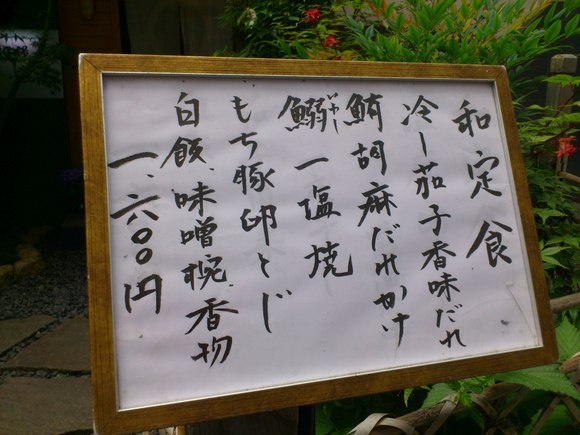 和定食
冷し茄子香味だれ
鮪胡麻だれかけ
一塩焼
もち豚卵とじ
白飯、味噌椀、香物
一、六〇〇円